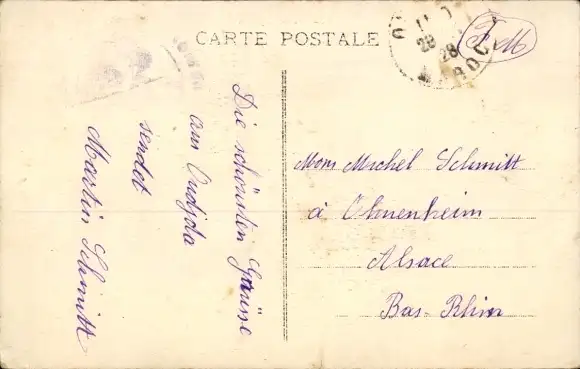 CARTE POSTALE
28
28
MAROC
F.M
Die schönsten Grüsse
aus Oudjda
sendet
Martin Schmitt
Mons Michel Schmitt
à Ohnenheim
Alsace
Bas-Rhin